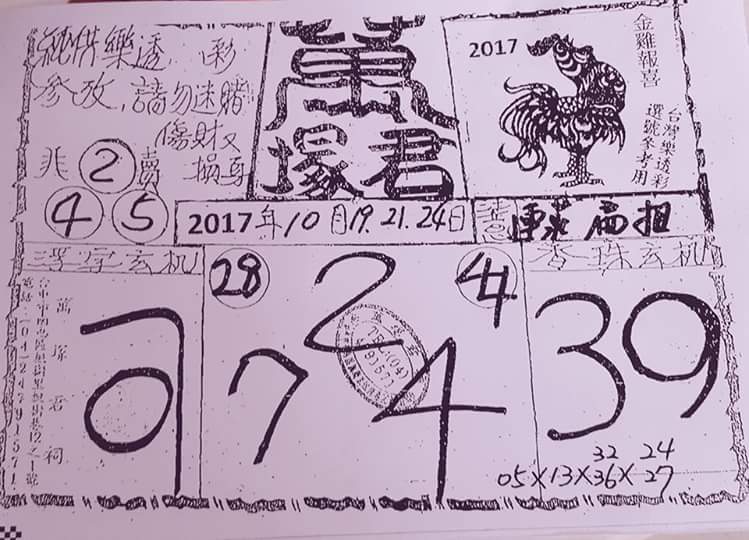 純供樂透 彩
参攷，請勿迷賭
傷財又
損身
兆 2 賣
4 5
萬
塚君
2017
金雞報喜
台灣樂透彩
選號參考用
2017年10月19.21.24日
扁担
浮字玄机
香珠玄机
萬塚君祠
28
2
44
7
4
39
32 24
05X13X36X27